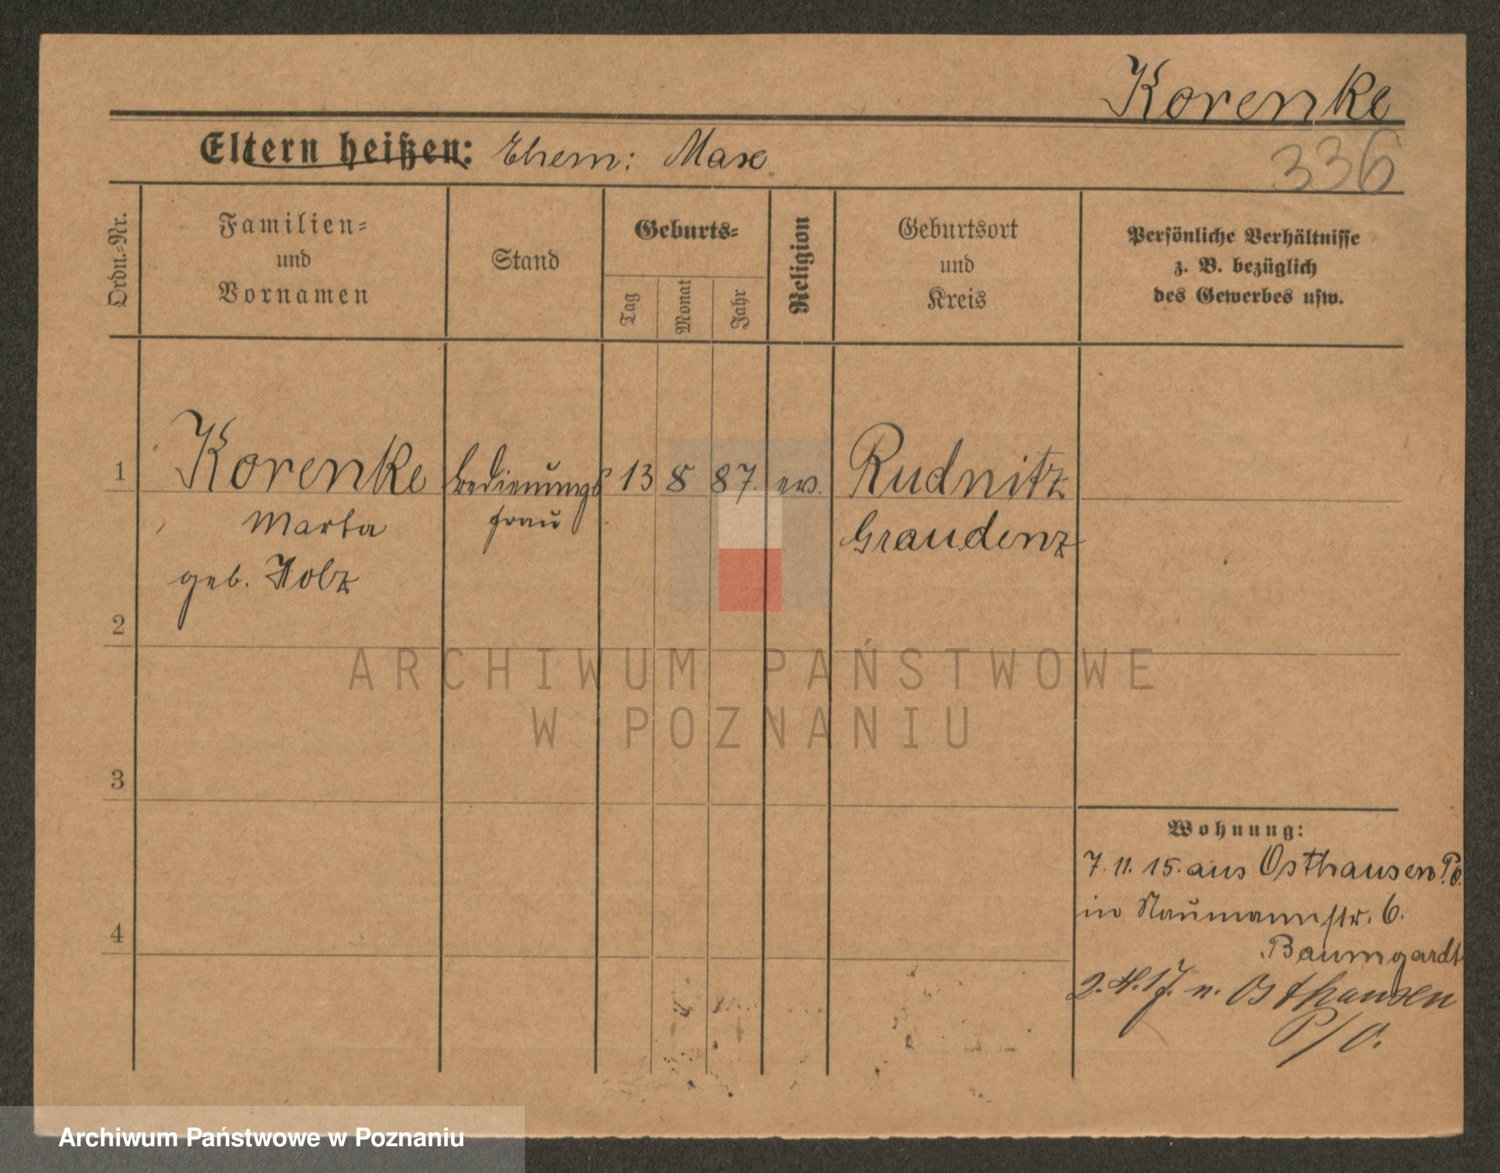 Korenke
Eltern heißen: Ehem: Max
336
Ordn.=Nr.
Familien=
und
Vornamen
Stand
Geburts=
Tag
Monat
Jahr
Religion
Geburtsort
und
Kreis
Persönliche Verhältnisse
z. B. bezüglich
des Gewerbes usw.
1 Korenke Bedienungs 13 8 87. ev. Rudnitz
Marta frau Graudenz
geb. Holz
2
ARCHIWUM PAŃSTWOWE
W POZNANIU
3
Wohnung:
7. 11. 15. aus Osthausen P.O.
in Naumannstr. 6.
4
Baumgardt
17. n. Osthausen
P/O.
Archiwum Państwowe w Poznaniu